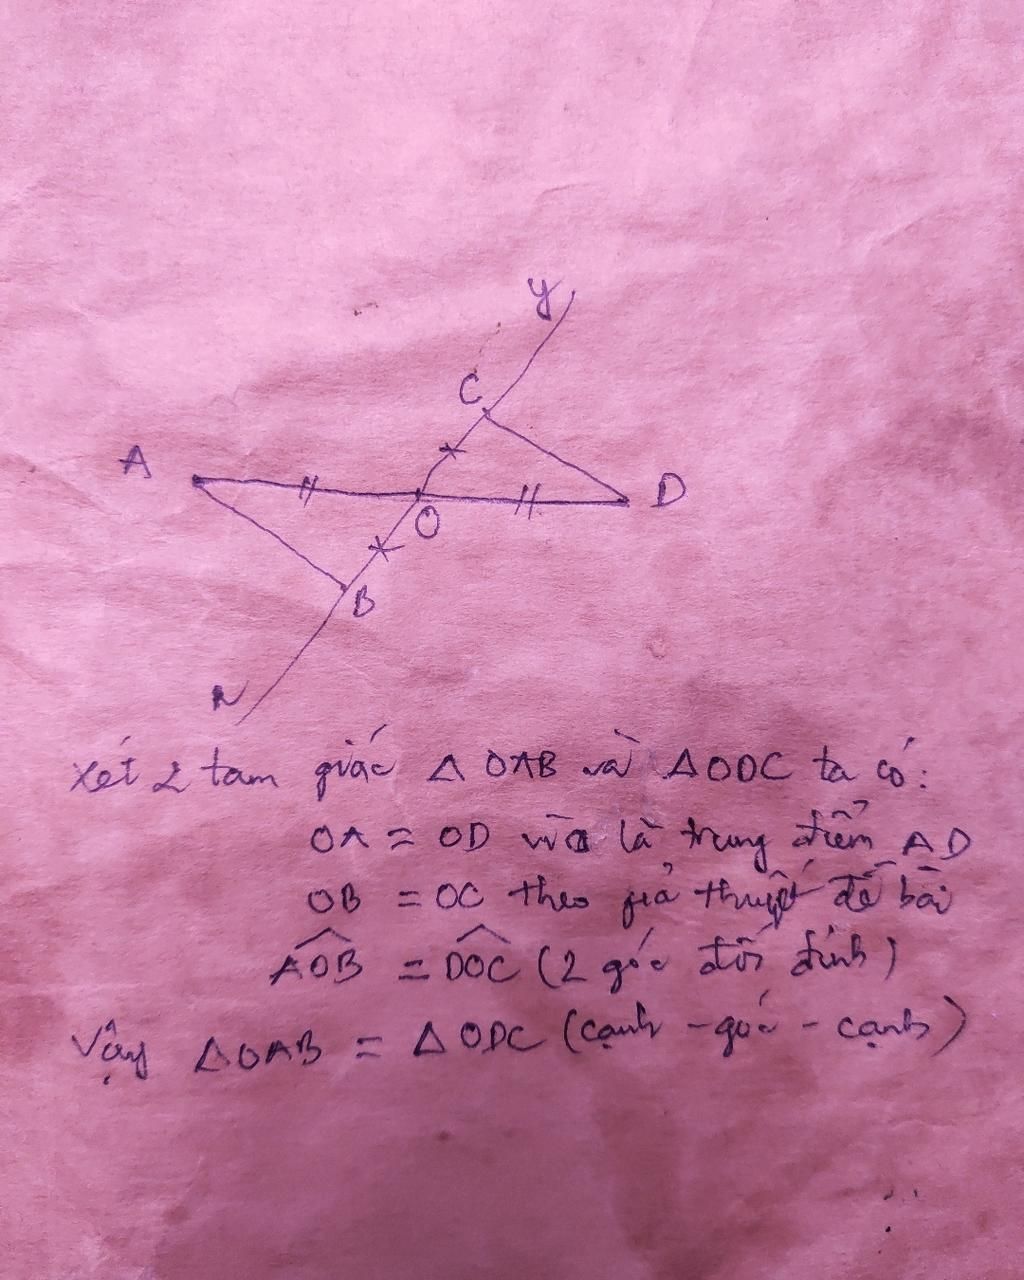 y
C
A
D
O
B
x
Xét 2 tam giác △ OAB và △ODC ta có:
OA = OD vì O là trung điểm AD
OB = OC theo giả thuyết đề bài
AOB = DOC (2 góc đối đỉnh)
Vậy △OAB = △ODC (cạnh - góc - cạnh)